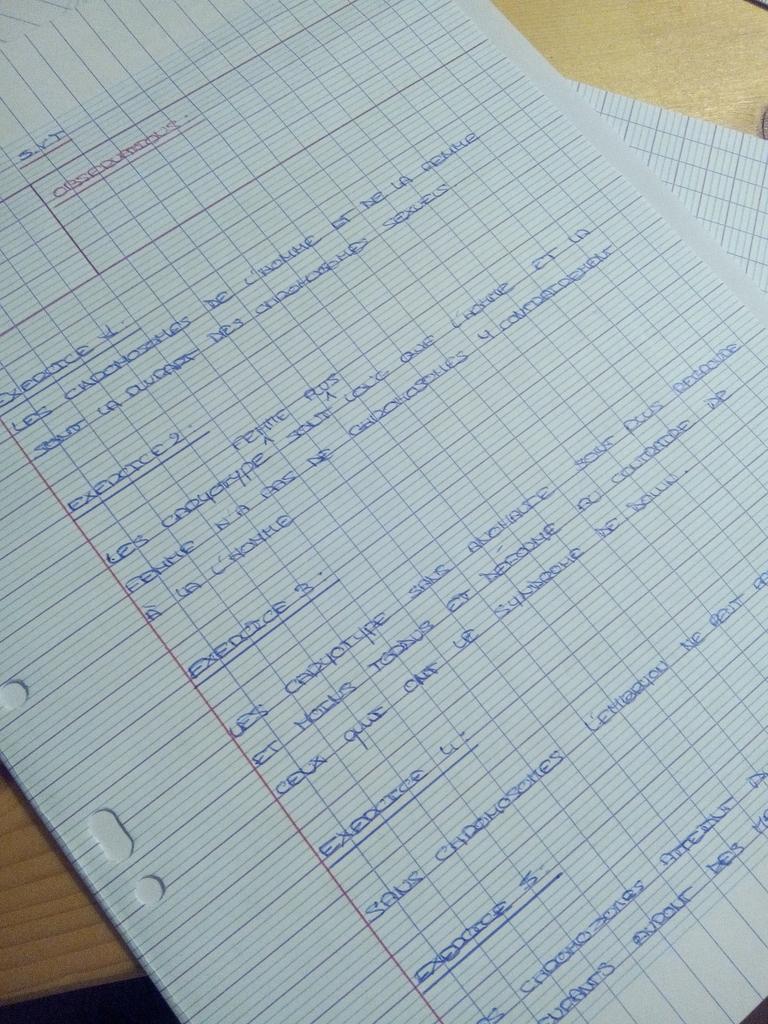 S.V.T
OBSERVATIONS.
EXERCICE 1.
LES CHROMOSOMES DE L'HOMME ET DE LA FEMME
SONT LA PLUPART DES CHROMOSOMES SEXUELS.
EXERCICE 2.
FEMME PLUS
LES CARYOTYPE SONT LONG QUE L'HOMME ET LA
FEMME N'A PAS DE CHROMOSOMES Y CONTRAIREMENT
À LA L'HOMME
EXERCICE 3.
LES CARYOTYPE SANS ANOMALIE SONT PLUS
ET MOINS TORDUS ET AU CONTRAIRE DE
CEUX QUI ONT LE SYNDROME DE DOWN.
EXERCICE 4:
SANS CHROMOSOMES L'EMBRYON NE PEUT
EXERCICE 5.
CHROMOSOMES
DES